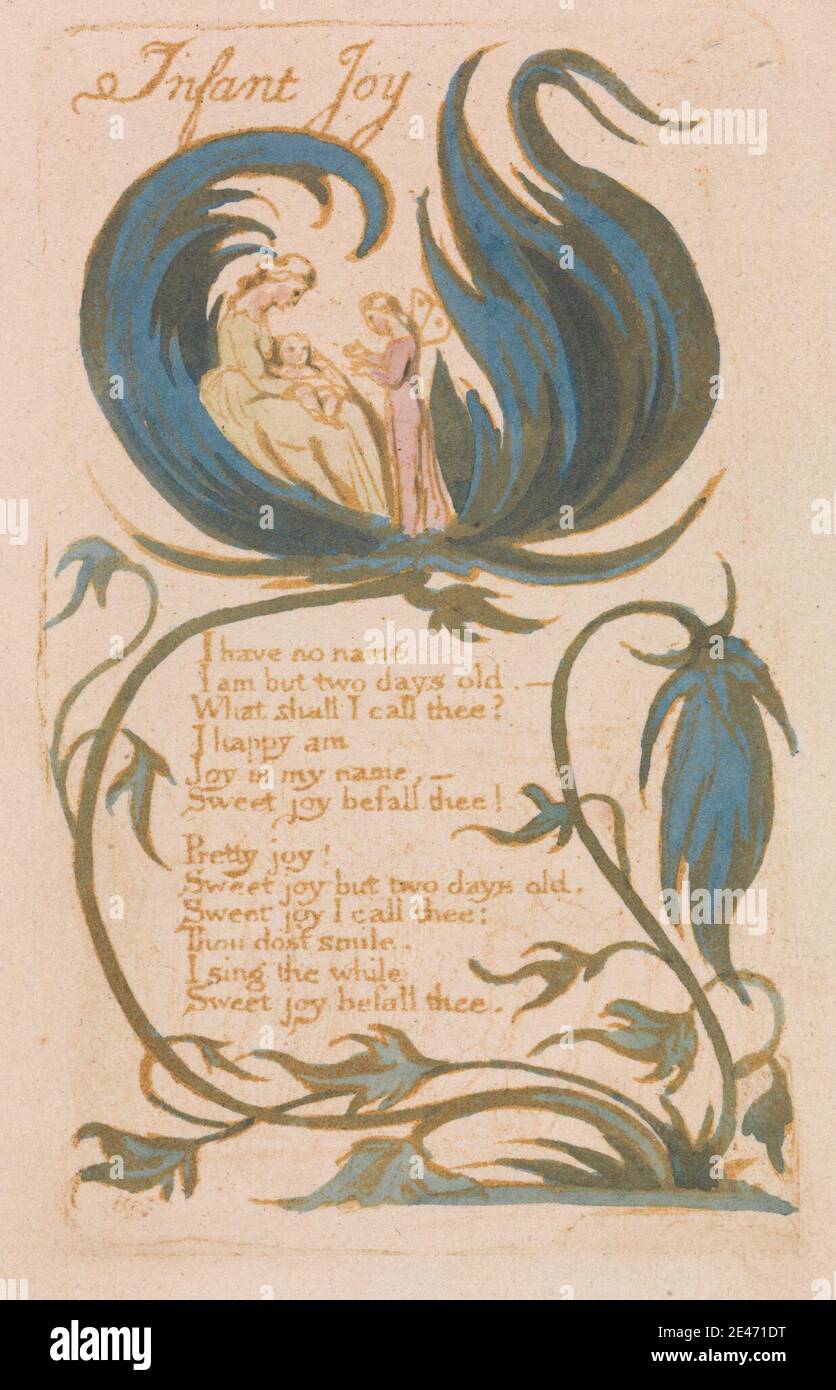 Infant Joy
I have no name
I am but two days old. —
What shall I call thee?
I happy am
Joy is my name, —
Sweet joy befall thee!
Pretty joy!
Sweet joy but two days old.
Sweet joy I call thee:
Thou dost smile.
I sing the while
Sweet joy befall thee.
alamy
a
a
a
a
a
a
a
alamy
Image ID: 2E471DT
www.alamy.com